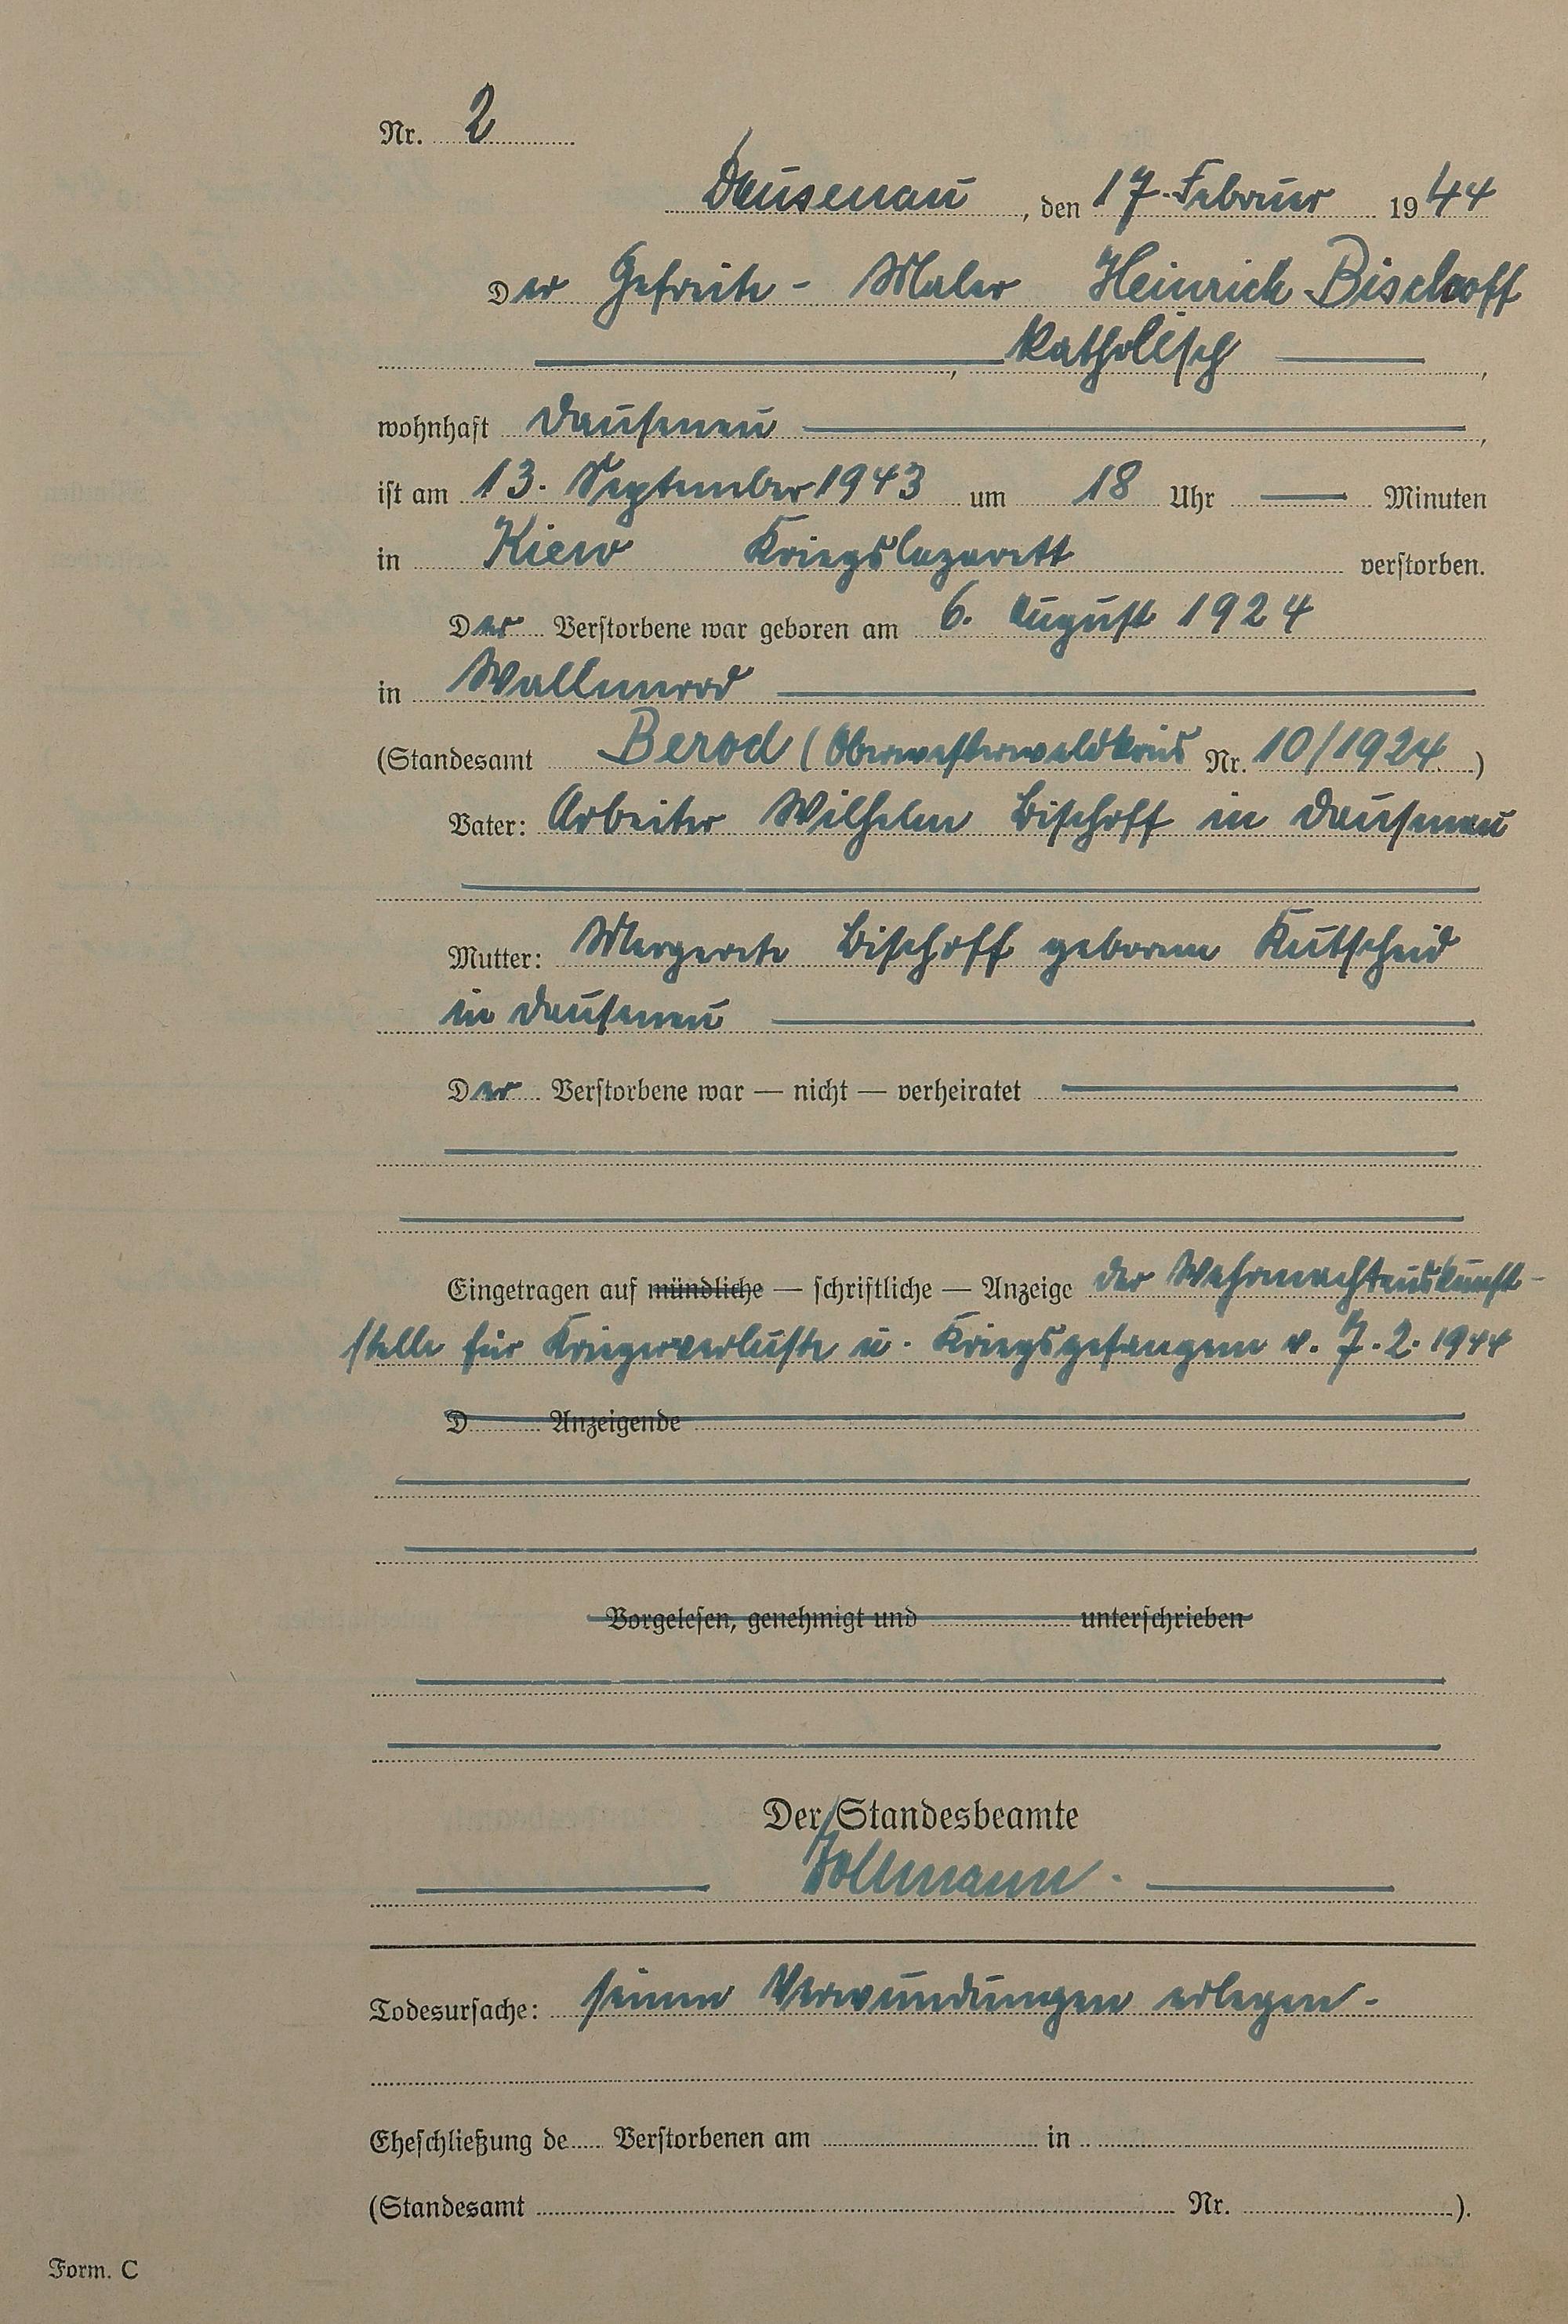 Nr. 2
Dausenau, den 17. Februar 1944
Der Gefreite - Maler Heinrich Bischoff
, katholisch ,
wohnhaft Dausenau ,
ist am 13. September 1943 um 18 Uhr Minuten
in Kiew Kriegslazarett verstorben.
Der Verstorbene war geboren am 6. August 1924
in Wallmerod
(Standesamt Berod (Oberwesterwaldkreis Nr. 10/1924)
Vater: Arbeiter Wilhelm Bischoff in Dausenau
Mutter: Margarete Bischoff geborene Kutscheid
in Dausenau
Der Verstorbene war — nicht — verheiratet
Eingetragen auf mündliche — schriftliche — Anzeige der Wehrmachtauskunft-
stelle für Kriegerverluste u. Kriegsgefangene v. 7.2.1944
D Anzeigende
Vorgelesen, genehmigt und unterschrieben
Der Standesbeamte
Todesursache: seinen Verwundungen erlegen.
Eheschließung de Verstorbenen am in
(Standesamt Nr. ).
Form. C